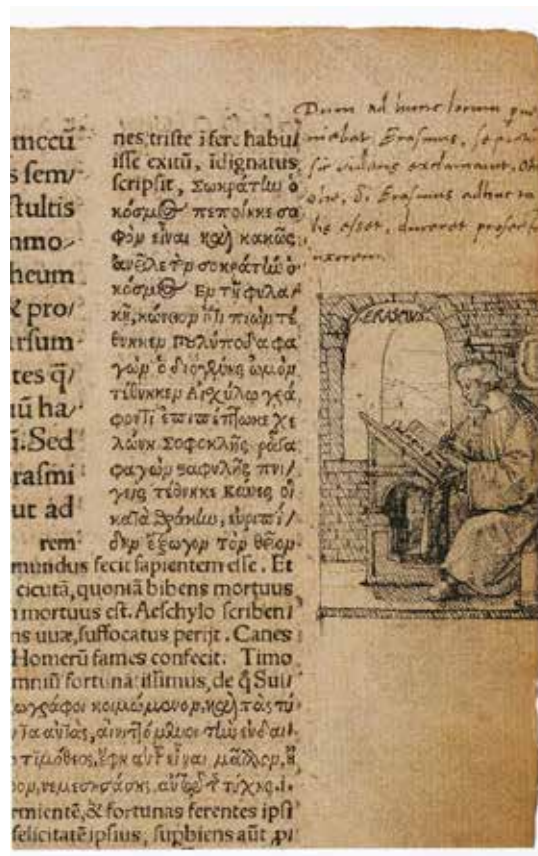 meccū
s sem/
stultis
mmo-
heum
& pro/
rsum
tes q̄/
iū ha/
ī. Sed
rasmi
ut ad
rem
nes triste ī fere habu/
isse exitū, īdignatus
scripsit, Σωκράτην ὁ
κόσμος πεποίηκε σο
φὸν εἶναι καὶ κακῶς
ἀνεῖλε τὸν σωκράτην ὁ
κόσμος Εν τῇ φυλα/
κῇ, κώνειον ὅτι πιὼν τέ
θνηκεν Πολύποδα φα
γὼν ὁ διογένης ὠμὸν
τέθνηκεν Αἰσχύλῳ γρά
φοντι ἐπιπέπτωκε χε
λώνη Σοφοκλῆς ῥᾶγα
φαγὼν σαφυλῆς πνι/
γεὶς τέθνηκε Κύνες οἱ
κατὰ θράκην, εὐριπί/
δην ἔτρωγον Τὸν θεῖον
mundus fecit sapientem esse. Et
cicutā, quoniā bibens mortuus
mortuus est. Aeschylo scriben/
ns uuæ, suffocatus perijt. Canes
Homerū fames confecit. Timo
mniū fortunatissimus, de q̄ Sui/
ωγράφοι κοιμώμενον, καὶ τὰς πό
τιμόθεος, ἔφη εἶναι μᾶλλον, ἢ
rmientē, & fortunas ferentes ipsi
felicitatē ipsius, supbiens aūt,
Dum ad hunc locum per
niebat Erasmus, se pictum
sic uidens exclamauit, ohe
ohe, si Erasmus adhuc ta
lis esset, duceret profecto
uxorem.
ERASMVS